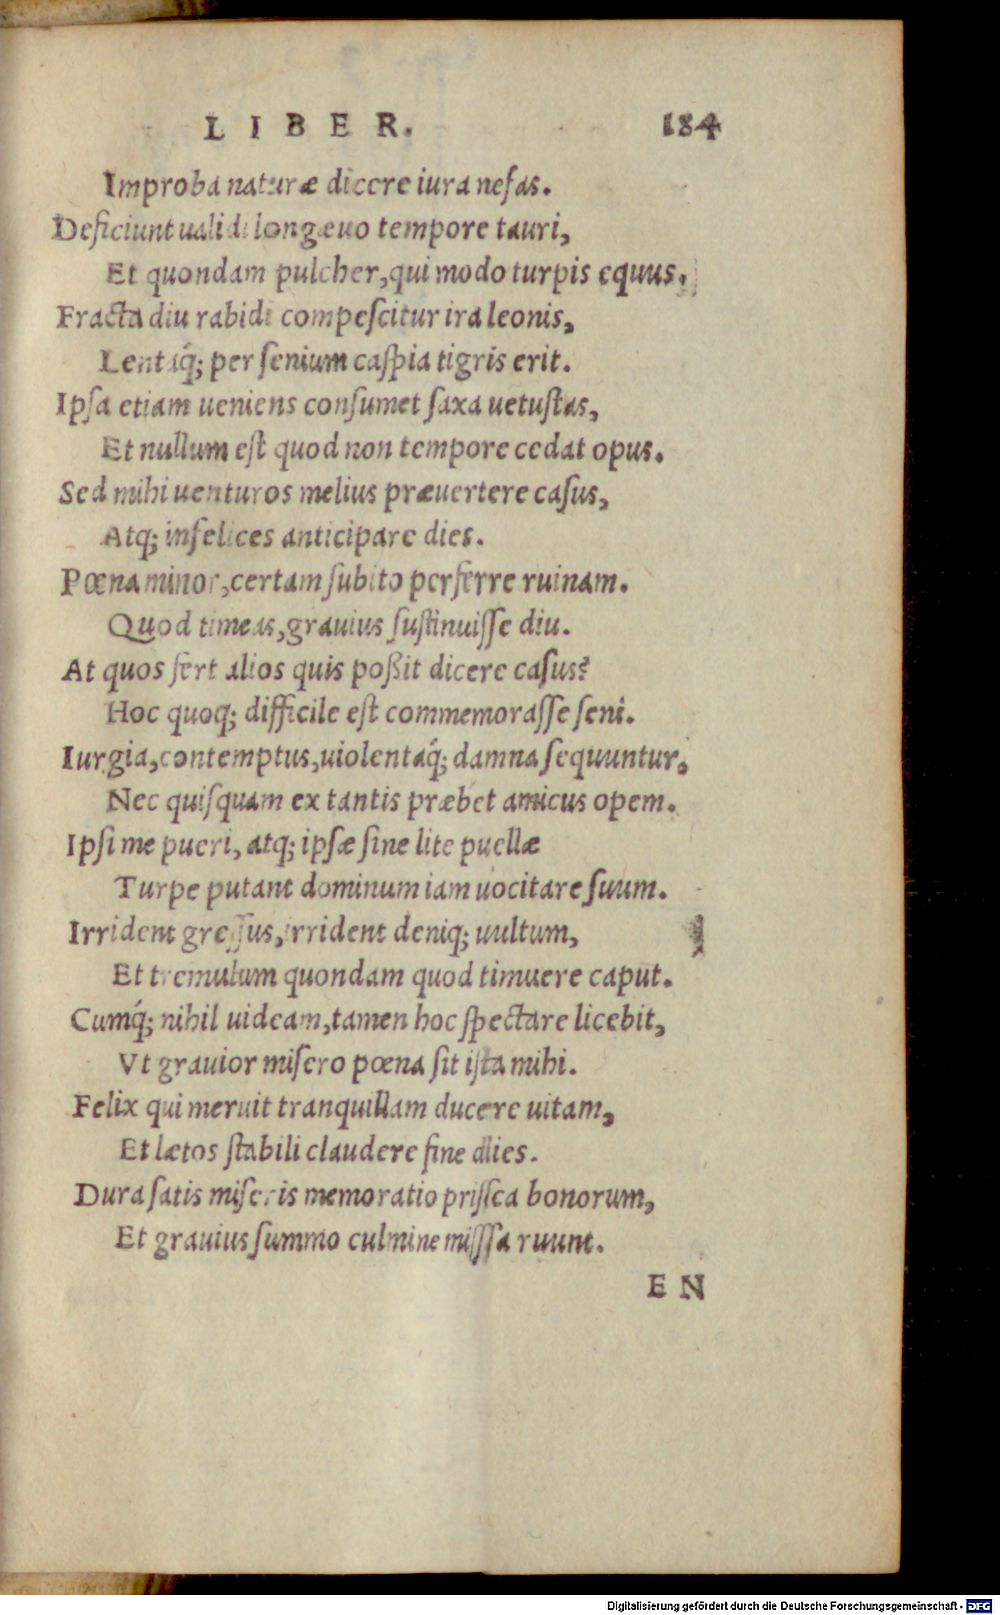 LIBER. 184
Improba naturæ dicere iura nefas.
Deficiunt ualidi longæuo tempore tauri,
Et quondam pulcher, qui modo turpis equus.
Fracta diu rabidi compeſcitur ira leonis,
Lentaq́; per ſenium caſpia tigris erit.
Ipſa etiam ueniens conſumet ſaxa uetuſtas,
Et nullum eſt quod non tempore cedat opus.
Sed mihi uenturos melius præuertere caſus,
Atq; infelices anticipare dies.
Pœna minor, certam ſubito perferre ruinam.
Quod timeas, grauius ſuſtinuiſſe diu.
At quos fert alios quis poßit dicere caſus?
Hoc quoq; difficile eſt commemoraſſe ſeni.
Iurgia, contemptus, uiolentaq́; damna ſequuntur,
Nec quiſquam ex tantis præbet amicus opem.
Ipſi me pueri, atq; ipſæ ſine lite puellæ
Turpe putant dominum iam uocitare ſuum.
Irrident greſſus, irrident deniq; uultum,
Et tremulum quondam quod timuere caput.
Cumq́; nihil uideam, tamen hoc ſpectare licebit,
Vt grauior miſero pœna ſit iſta mihi.
Felix qui meruit tranquillam ducere uitam,
Et lætos ſtabili claudere fine dies.
Dura ſatis miſeris memoratio priſca bonorum,
Et grauius ſummo culmine miſſſa ruunt.
EN
Digitalisierung gefördert durch die Deutsche Forschungsgemeinschaft - DFG